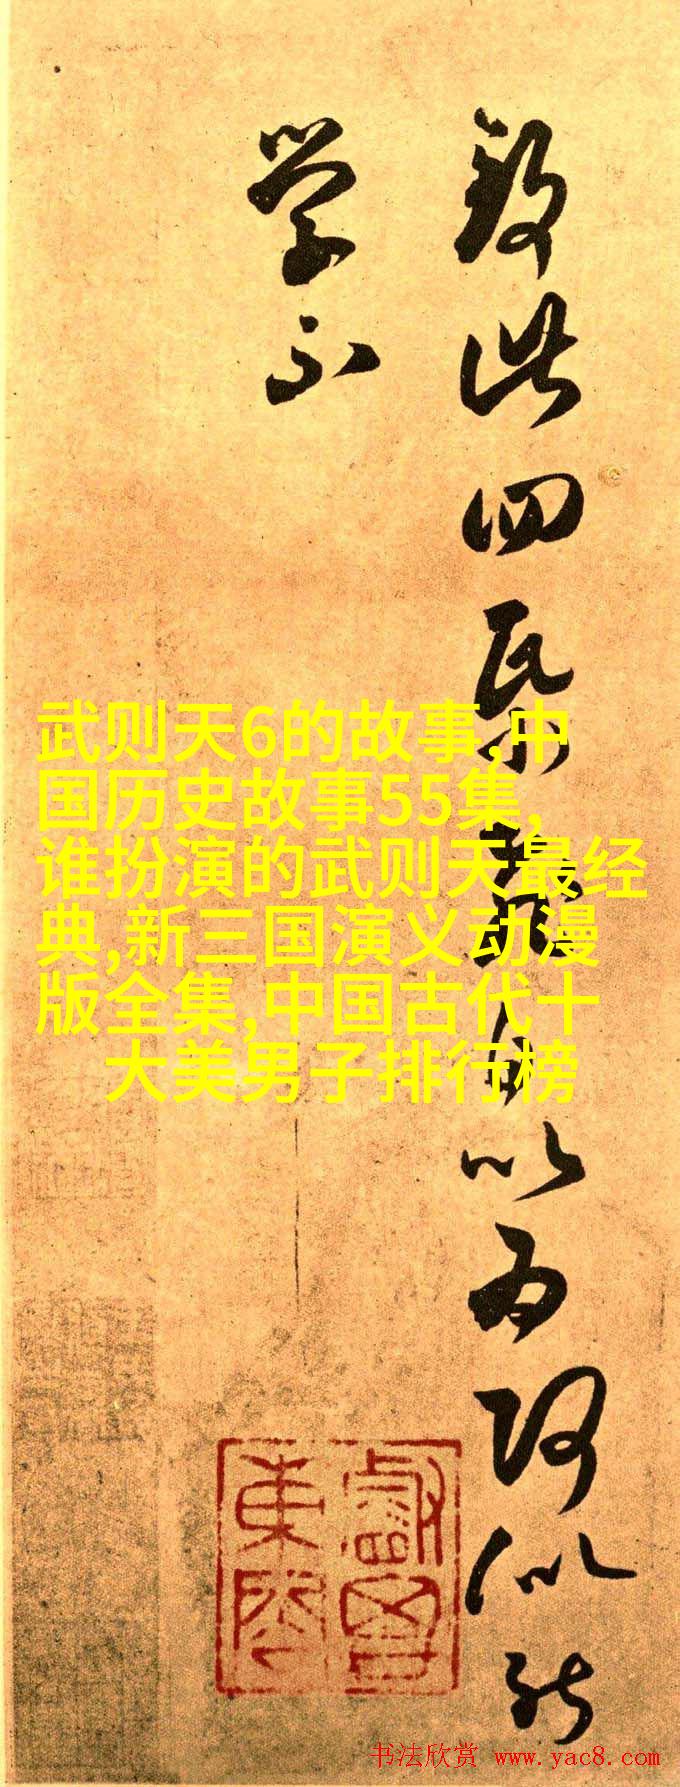 此四 以为 似能
学不
武则天6的故事,中
国历史故事55集,
谁扮演的武则天最经
典,新三国演义动漫
版全集,中国古代十
大美男子排行榜
书法欣赏 www.yac8.com